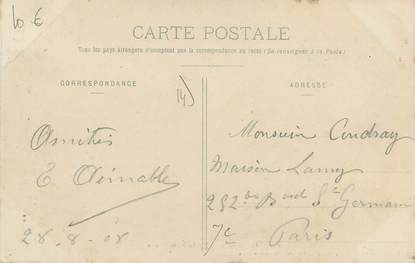 10 €
CARTE POSTALE
Tous les pays étrangers n'acceptent pas la correspondance au recto (Se renseigner à la Poste)
CORRESPONDANCE
ADRESSE
Amitiés
E Aimable
28-8-08
Monsieur Coudray
Maison Lamy
252 bis Bard St Germain
7e Paris